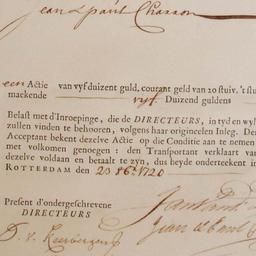 Jean & paul Charron
een Actie van vyf duizent guld, courant geld van 20 stuiv. 't stu
makende vyf Duizend guldens
Belast met d'Inroepinge, die de DIRECTEURS, in tyd en wyl
zullen vinden te behooren, volgens haar origineelen Inleg. Den
Acceptant bekent dezelve Actie op die Conditie aan te nemen
met volkomen genoegen: den Transportant verklaart van
dezelve voldaan en betaalt te zyn, dus heyde onderteekent in
ROTTERDAM den 23 8b. 1720
Present d'ondergeschrevene
DIRECTEURS
Jean & Paul